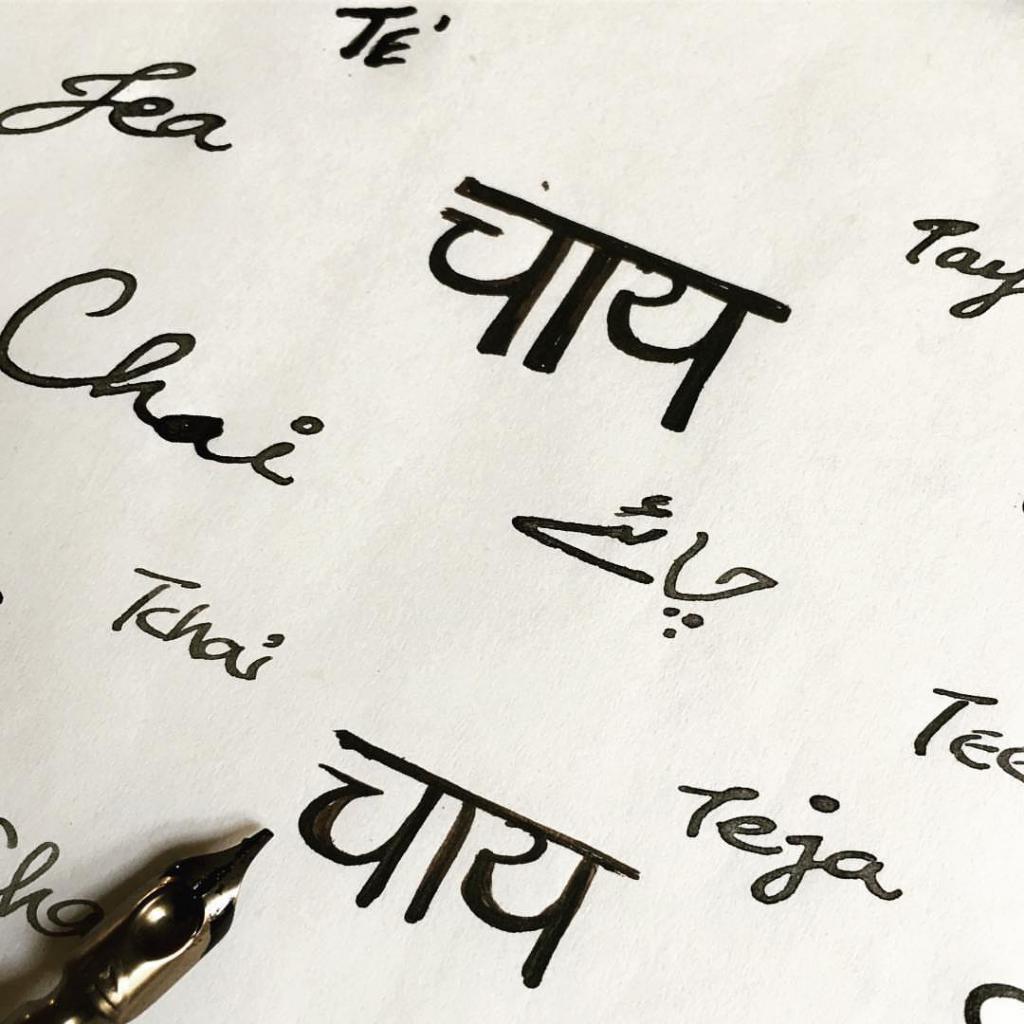 TE'
Tea
चाय
Tay
Chai
چائے
Tchai
TEE
चाय
Teja
Cha